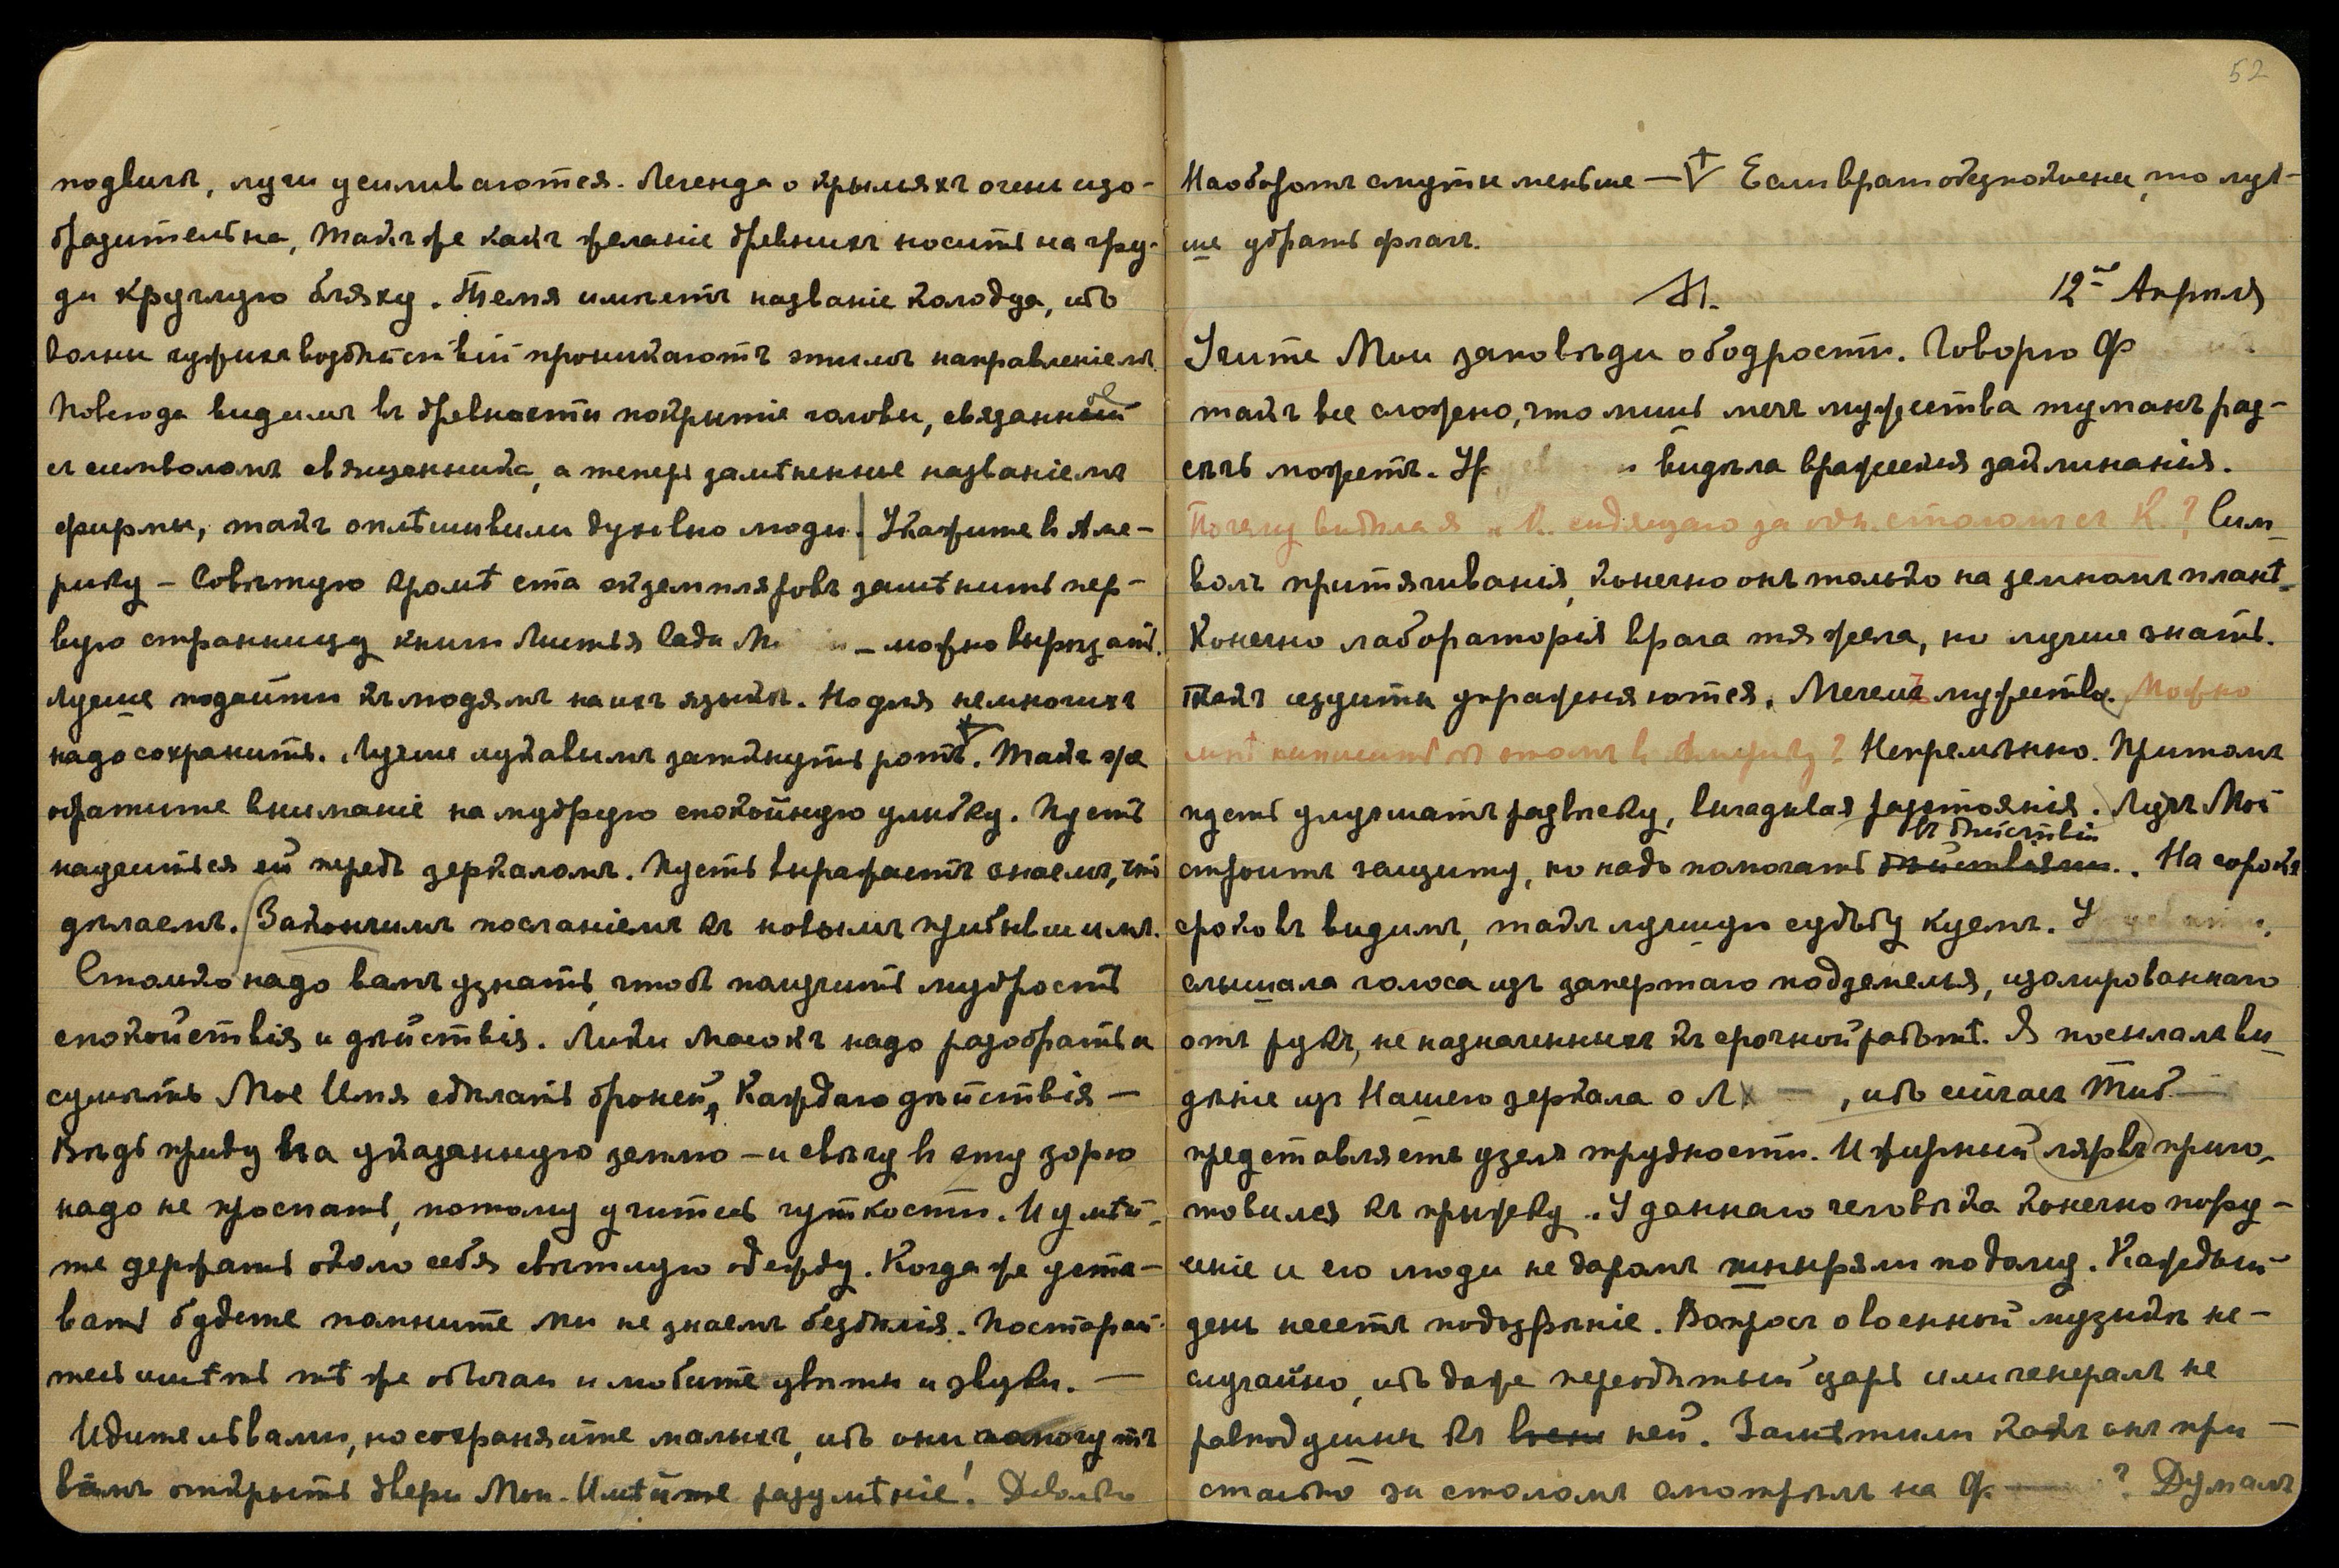 подвигъ, лучи усиливаются. Легенда о крыльяхъ очень изо-
бразительна, также какъ желаніе древнихъ носить на гру-
ди круглую бляху. Темя имѣетъ названіе колодца, ибо
волны чужихъ воздѣйствій проникаютъ этимъ направленіемъ.
Повсюду видимъ въ древности покрытіе головы, связанное
съ символомъ священника, а теперь замѣненные названіемъ
фирмы, такъ оплѣшивѣли духовно люди. Укажите въ Аме-
рику – Совѣтую кромѣ ста экземпляровъ замѣнить пер-
вую страницу книги Листья Сада М – можно вырѣзать.
Лучше подойти къ людямъ на ихъ языкѣ. Но для немногихъ
надо сохранить. Лучше лукавымъ заткнуть ротъ. Также
обратите вниманіе на мудрую спокойную улыбку. Пусть
научится ей передъ зеркаломъ. Пусть выражаетъ знаемъ, что
дѣлаемъ. Закончимъ посланіемъ къ новымъ прибывшимъ.
Столько надо вамъ узнать, чтобъ научить мудрость
спокойствія и дѣйствія. Лики масокъ надо разобрать и
сумѣть Мое Имя сдѣлать броней, каждаго дѣйствія –
Вѣдь приду на указанную землю – и свѣчу въ эту зорю
надо не проспать, потому учитесь чуткости. И умѣй-
те держать около себя свѣтлую одежду. Когда же уста-
вать будете помните мы не знаемъ бездѣлія. Постарай-
тесь имѣть тѣ же обычаи и любите цвѣты и звуки. –
Идите львами, но сохраняйте малыхъ, ибо они помогутъ
вамъ открыть двери Мои. Имѣйте разумѣніе! Довольно
52
Наоборотъ смуты меньше – Если врата обезпокоены, то луч-
ше убрать флагъ.
12ое Апрѣля
Учите Мои заповѣди о бодрости. Говорю Ф
такъ все сложено, что лишь мечъ мужества туманъ раз-
сѣчь можетъ. Ур видѣла вражескія заклинанія.
Почему видѣла я сидящаго за одн. столомъ съ К.? Сим-
волъ притягиванія, конечно онъ только на земномъ планѣ.
Конечно лабораторія врага тяжела, но лучше знать.
Такъ щиты упражняются. Мечемъ мужества. Можно
мнѣ написать объ этомъ въ Америку? Непремѣнно. Притомъ
пусть улучшатъ развѣску, выгадывая разстоянія. Лучъ Мой
строитъ защиту, но надо помогать въ дѣйствіи. На сорокъ
сроковъ видимъ, такъ лучшую судьбу куемъ. У
слышала голоса изъ запертаго подземелья, изолированнаго
отъ рукъ, не назначенныхъ къ срочной работѣ. Я посылалъ ви-
дѣніе изъ Нашего зеркала о Л –, ибо сейчасъ Тиб –
представляетъ узелъ трудности. И жирный лярвъ приго-
товился къ прыжку. У даннаго человѣка конечно пору-
ченіе и его люди не даромъ шныряли по дому. Каждый
день несетъ подозрѣніе. Вопросъ о военной музыкѣ не-
случайно, ибо даже переодѣтый царь или генералъ не
равнодушны къ ней. Замѣтили какъ онъ при-
стально за столомъ смотрѣлъ на Ф –? Думалъ